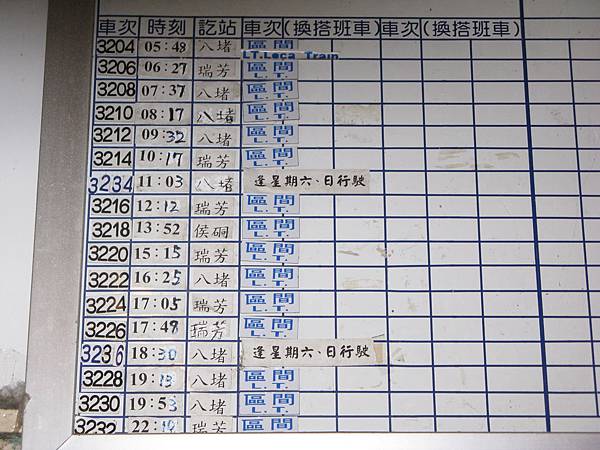 車次 時刻 訖站 車次(換搭班車) 車次(換搭班車)
3204 05:48 八堵 區間
LT.Loca Train
3206 06:27 瑞芳 區間 L.T.
3208 07:37 八堵 區間 L.T.
3210 08:17 八堵 區間 L.T.
3212 09:32 八堵 區間 L.T.
3214 10:17 瑞芳 區間 L.T.
3234 11:03 八堵 逢星期六、日行駛
3216 12:12 瑞芳 區間 L.T.
3218 13:52 侯硐 區間 L.T.
3220 15:15 瑞芳 區間 L.T.
3222 16:25 八堵 區間 L.T.
3224 17:05 瑞芳 區間 L.T.
3226 17:48 瑞芳 區間 L.T.
3236 18:30 八堵 逢星期六、日行駛
3228 八堵 區間 L.T.
3230 19:53 八堵 區間 L.T.
3232 瑞芳 區間